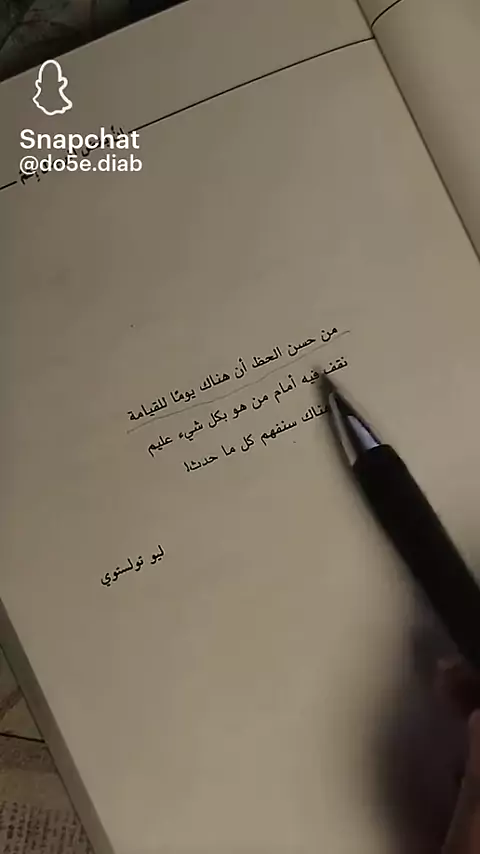 Snapchat
@do5e.diab
من حسن الحظ أن هناك يومًا للقيامة
نقف فيه أمام من هو بكل شيء عليم
هناك سنفهم كل ما حدث!
ليو تولستوي